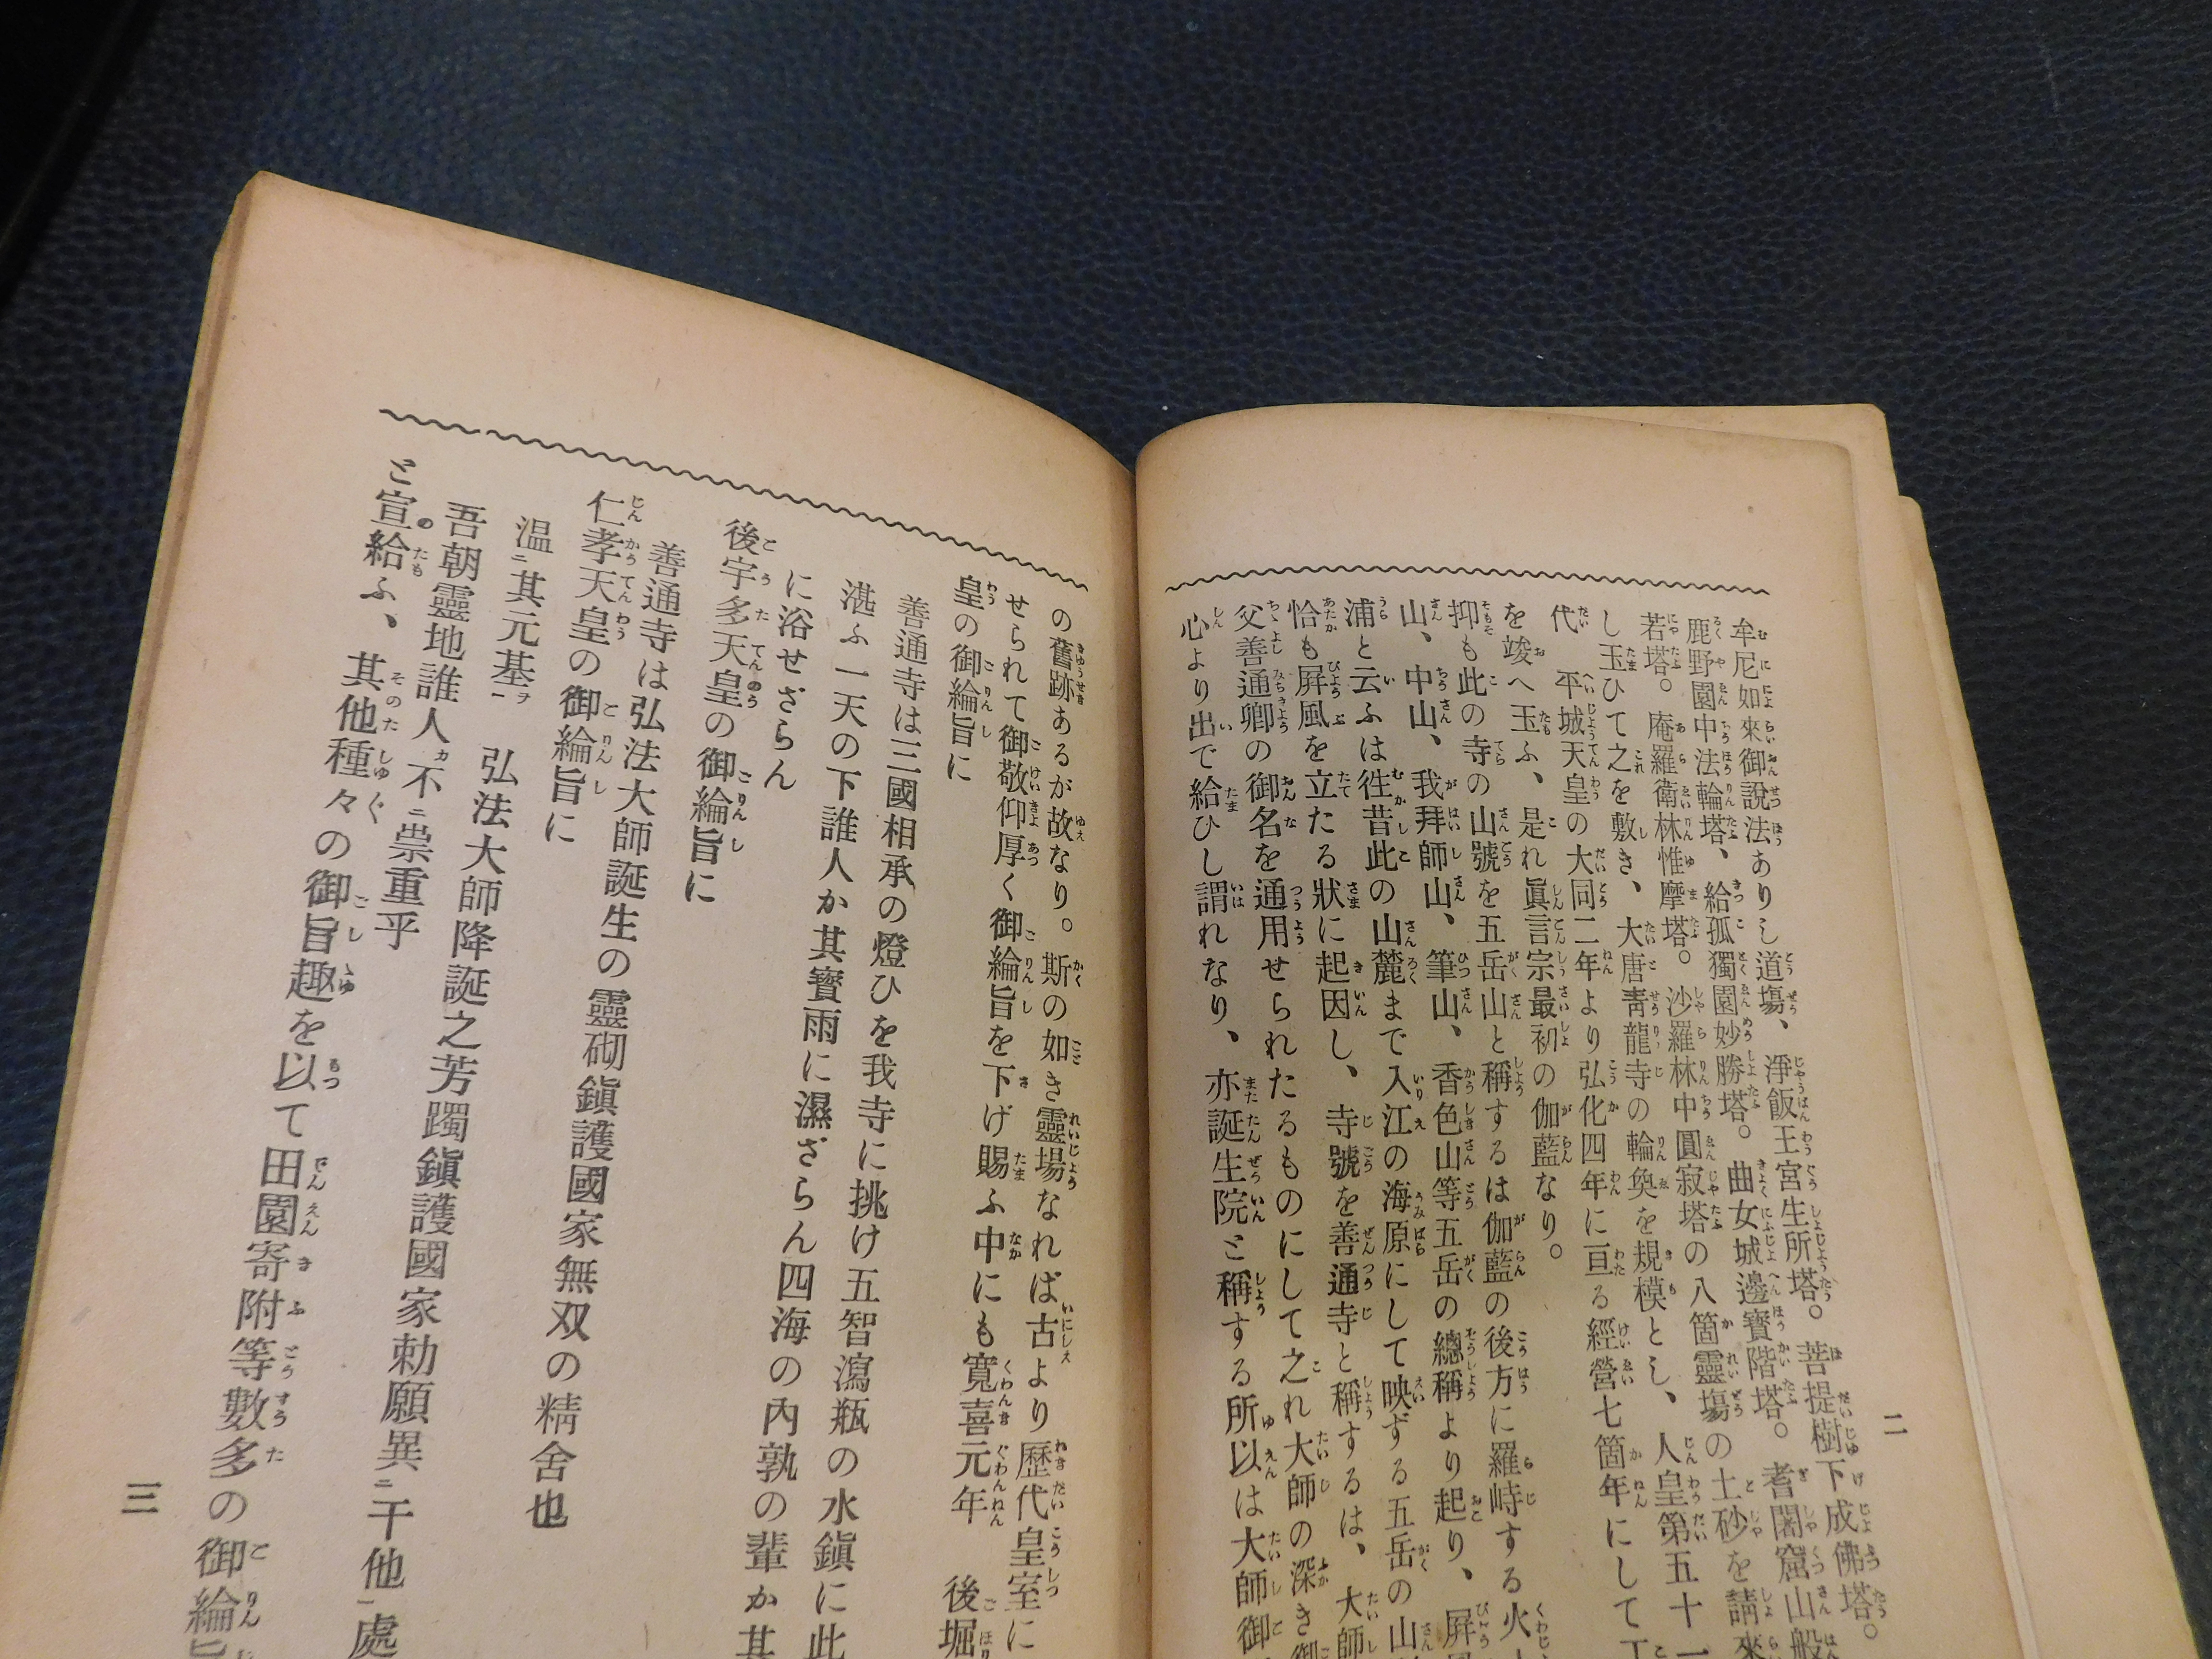 牟尼如來御說法ありし道塲、淨飯王宮生所塔。菩提樹下成佛塔。
鹿野園中法輪塔、給孤獨園妙勝塔。曲女城邊寶階塔。耆闍窟山般
若塔。庵羅衛林惟摩塔。沙羅林中圓寂塔の八箇靈塲の土砂を請來
し玉ひて之を敷き、大唐靑龍寺の輪奐を規模とし、人皇第五十一
代平城天皇の大同二年より弘化四年に亘る經營七箇年にして
を竣へ玉ふ、是れ眞言宗最初の伽藍なり。
抑も此の寺の山號を五岳山と稱するは伽藍の後方に羅峙する火
山、中山、我拜師山、筆山、香色山等五岳の總稱より起り、屛
浦と云ふは徃昔此の山麓まで入江の海原にして映ずる五岳の山
恰も屛風を立たる狀に起因し、寺號を善通寺と稱するは、大師
父善通卿の御名を通用せられたるものにして之れ大師の深き御
心より出で給ひし謂れなり、亦誕生院と稱する所以は大師御
二
の舊跡あるが故なり。斯の如き靈場なれば古より歷代皇室に
せられて御敬仰厚く御綸旨を下げ賜ふ中にも寬喜元年 後堀
皇の御綸旨に
善通寺は三國相承の燈ひを我寺に挑け五智瀉瓶の水鎭に此
湛ふ一天の下誰人か其寶雨に濕ざらん四海の內孰の輩か其
に浴せざらん
後宇多天皇の御綸旨に
善通寺は弘法大師誕生の靈砌鎭護國家無双の精舍也
仁孝天皇の御綸旨に
温ニ其元基ヲ一 弘法大師降誕之芳躅鎭護國家勅願異ニ干他一處
吾朝靈地誰人カ不ニ崇重乎
と宣給ふ、其他種々の御旨趣を以て田園寄附等數多の御綸旨
三